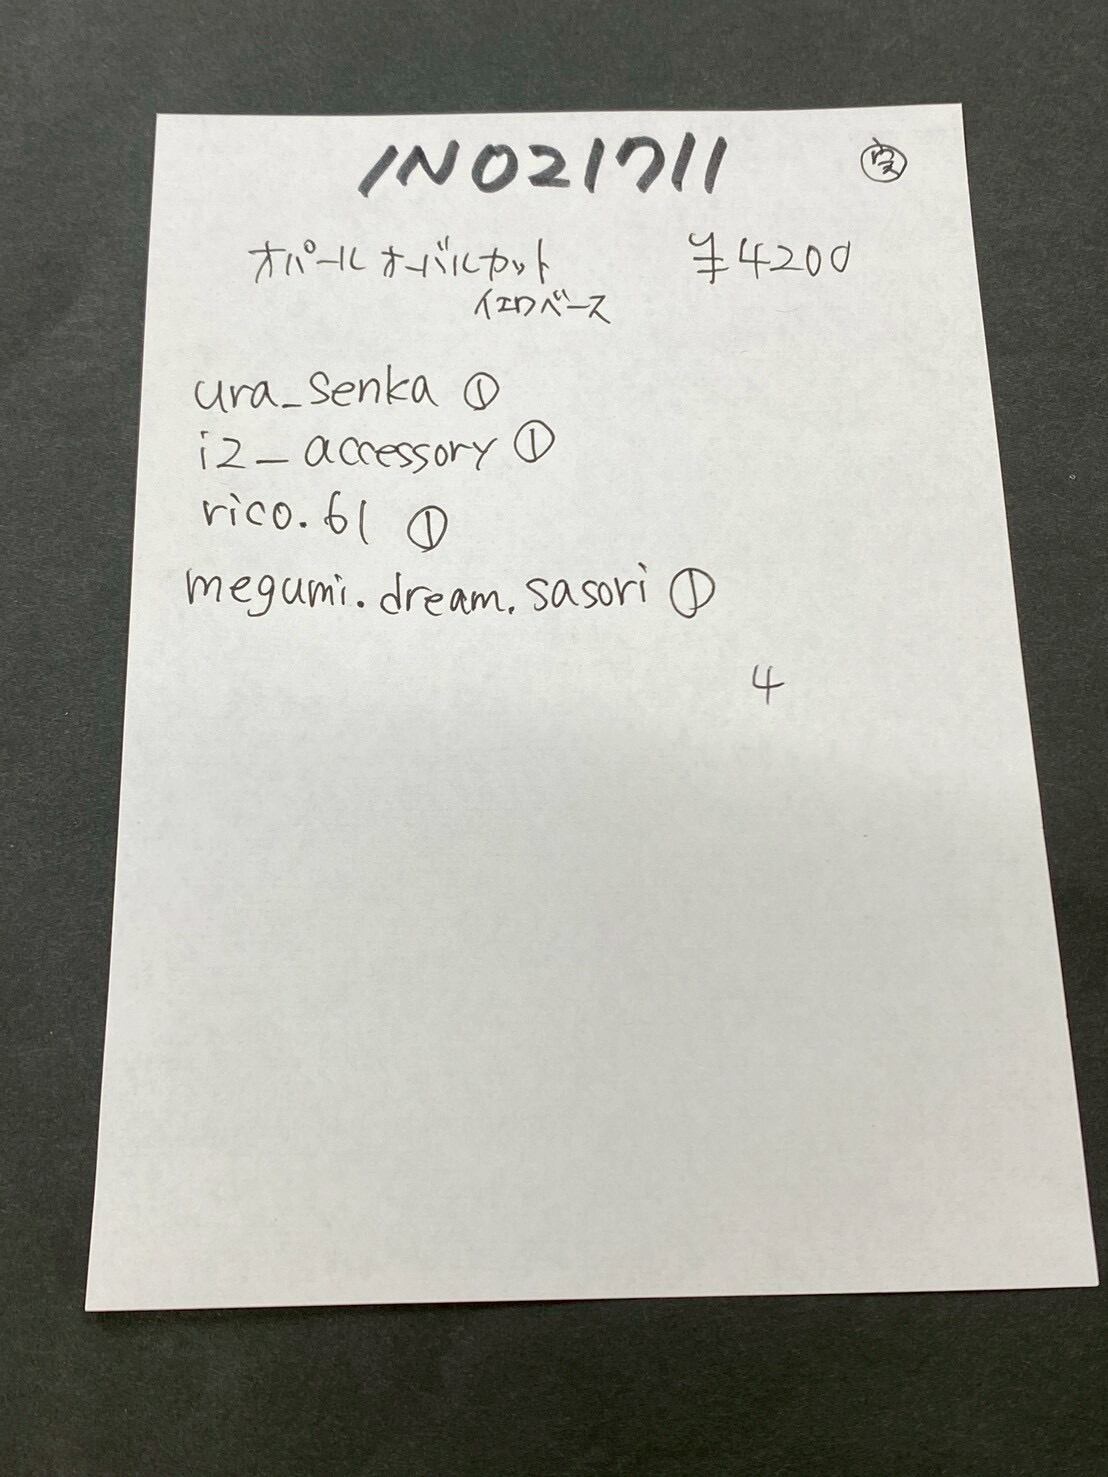 IN021711
オパール オーバルカット ¥4200
イエロベース
ura_senka ①
i2_accessory ①
rico.61 ①
megumi.dream.sasori ①
4